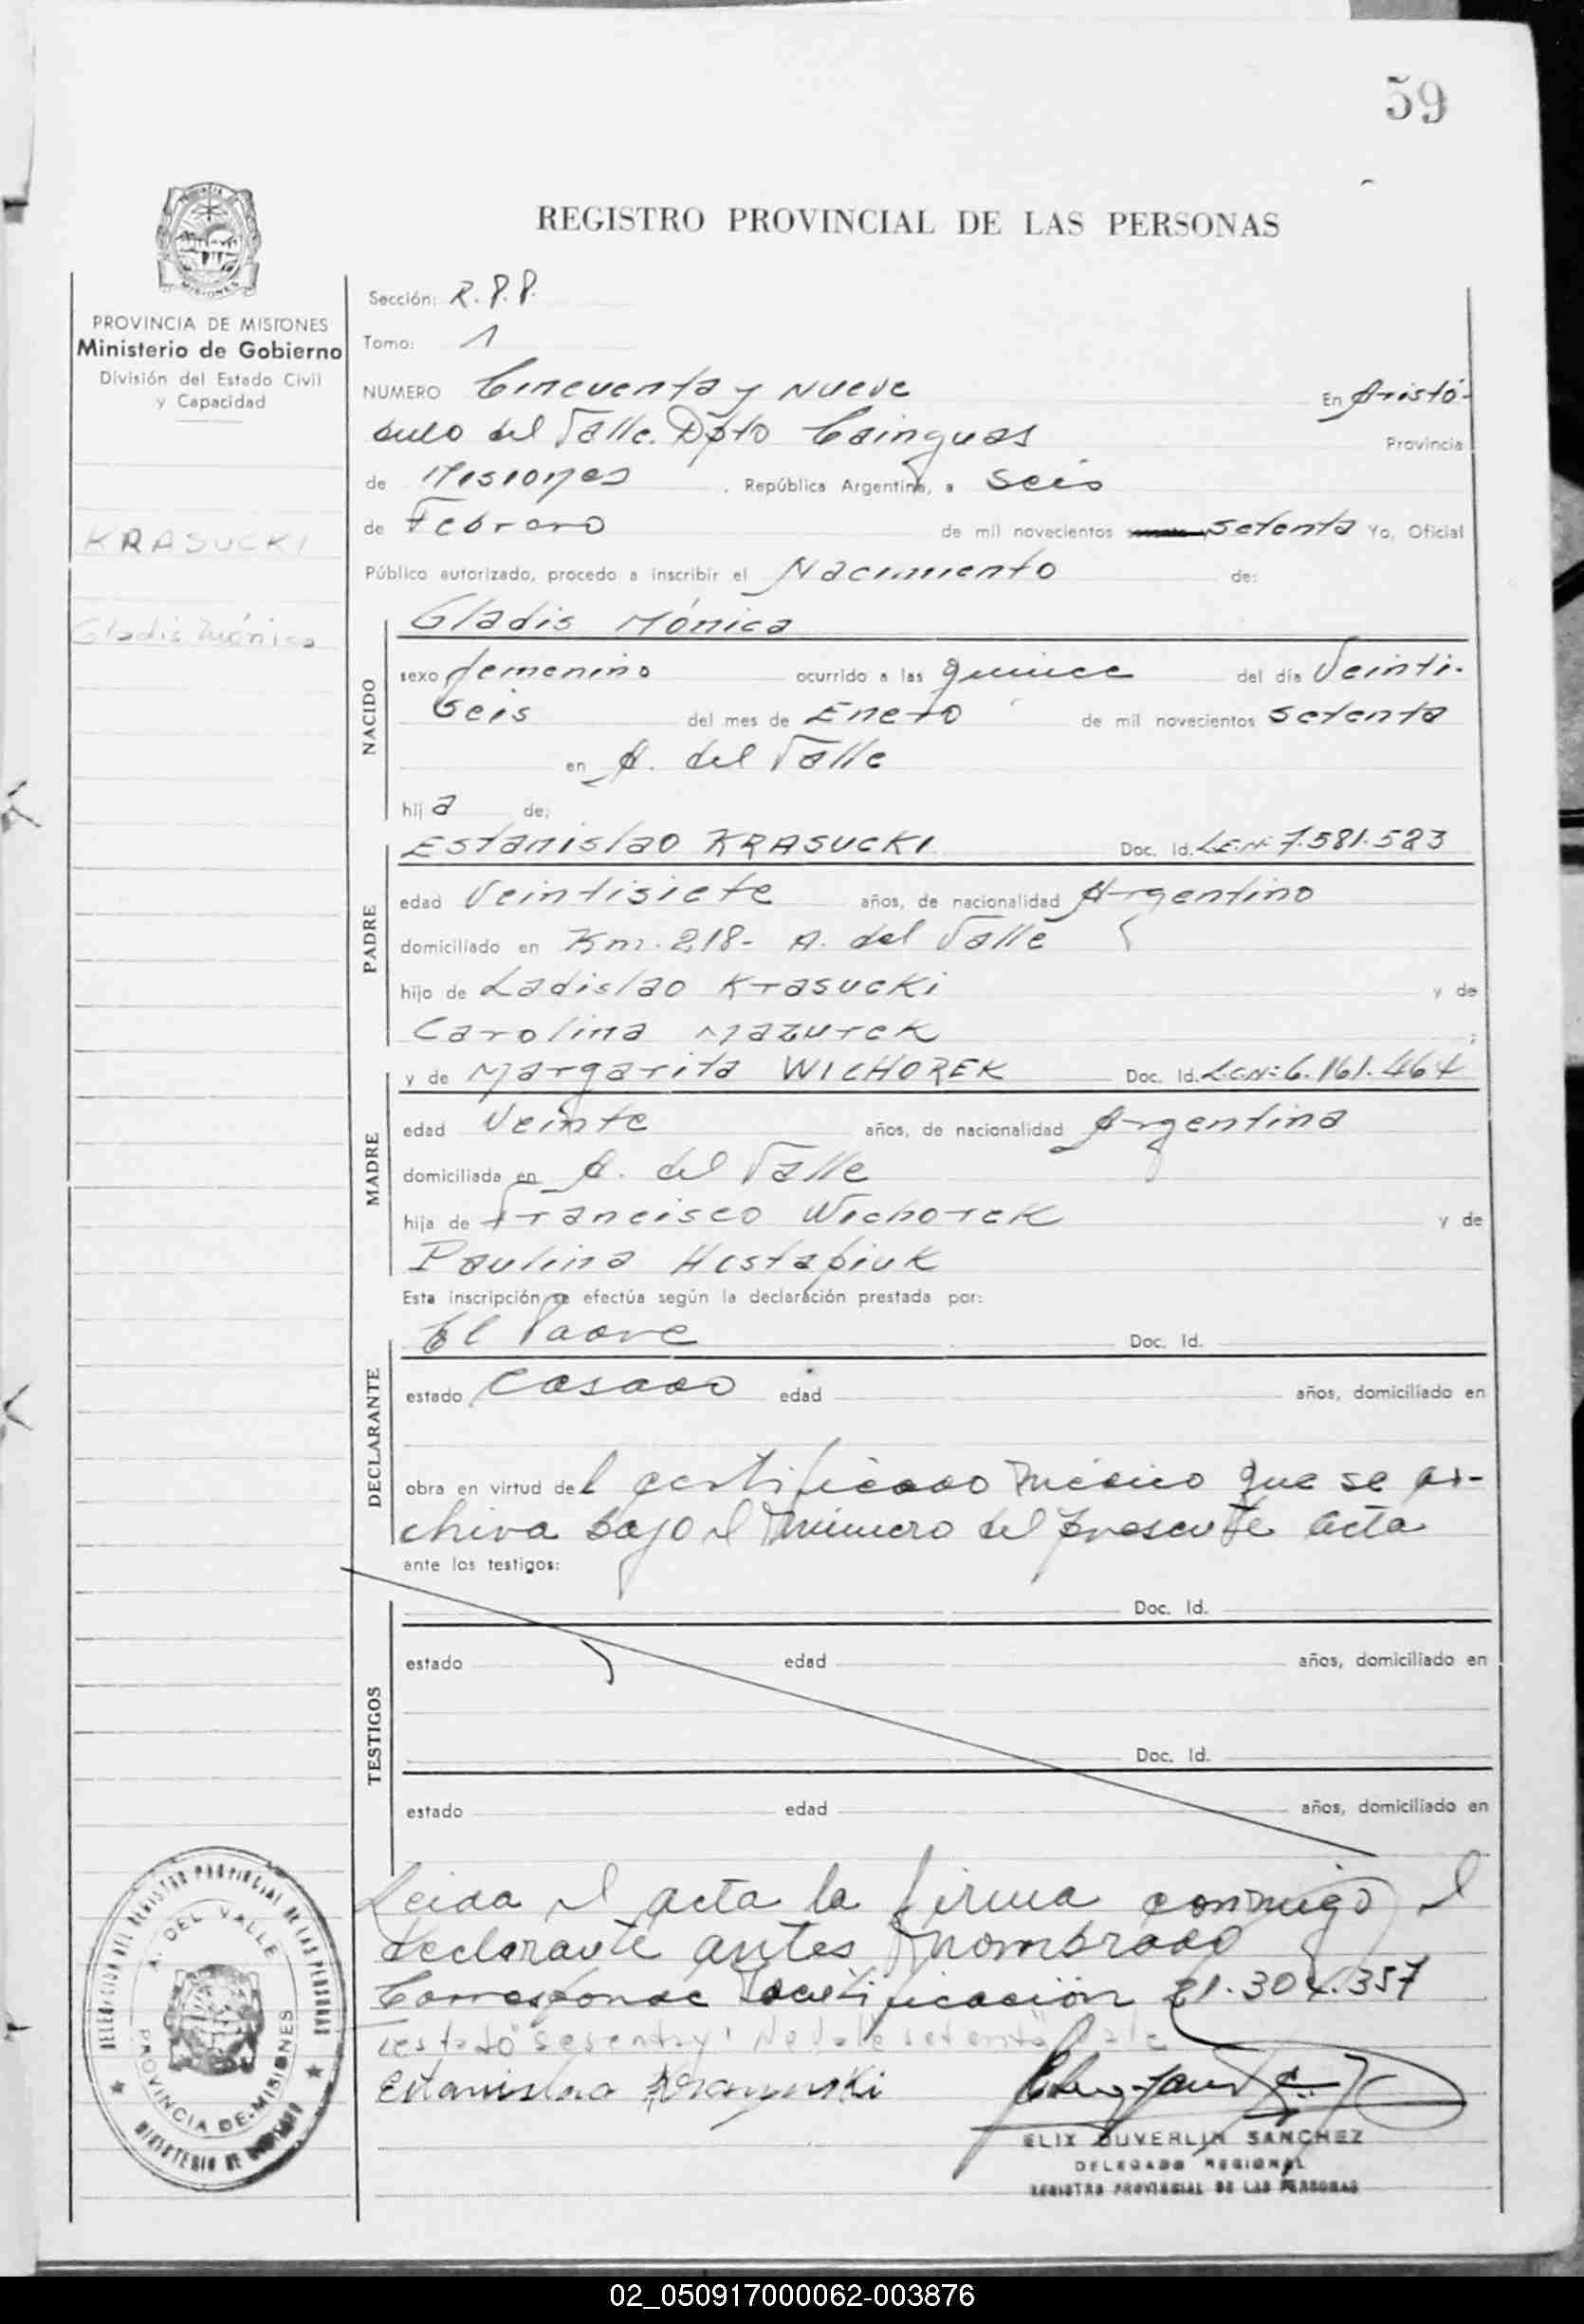 59
REGISTRO PROVINCIAL DE LAS PERSONAS
PROVINCIA DE MISIONES
Ministerio de Gobierno
División del Estado Civil
y Capacidad
KRASUCKI
Gladis Mónica
Sección: R.P.P.
Tomo: 1
NUMERO Cincuenta y Nueve En Aristó-
bulo del Valle. Dpto Cainguas Provincia
de Misiones, República Argentina, a seis
de Febrero de mil novecientos setenta Yo, Oficial
Público autorizado, procedo a inscribir el Nacimiento de:
NACIDO
Gladis Mónica
sexo femenino ocurrido a las quince del día Veinti-
seis del mes de Enero de mil novecientos setenta
en A. del Valle
hija de:
PADRE
Estanislao KRASUCKI Doc. Id. L.E.Nº 7.581.523
edad Veintisiete años, de nacionalidad Argentino
domiciliado en Km. 218- A. del Valle
hijo de Ladislao Krasucki y de
Carolina Mazurek;
MADRE
y de Margarita WICHOREK Doc. Id. L.C.Nº 6.161.464
edad Veinte años, de nacionalidad Argentina
domiciliada en A. del Valle
hija de Francisco Wichorek y de
Paulina Hostapiuk
Esta inscripción se efectúa según la declaración prestada por:
DECLARANTE
El Padre Doc. Id.
estado Casado edad años, domiciliado en
obra en virtud del certificado médico que se ar-
chiva bajo el número del presente acta
ante los testigos:
TESTIGOS
Doc. Id.
estado edad años, domiciliado en
Doc. Id.
estado edad años, domiciliado en
Leida el acta la firma conmigo el
declarante antes nombrado
Corresponde Identificación 21.304.357
testado "sesenta y" No Vale setenta" Vale
Estanislao
ELIX DUVERLIN SANCHEZ
DELEGADO REGIONAL
REGISTRO PROVINCIAL DE LAS PERSONAS
DELEGACION DEL REGISTRO PROVINCIAL DE LAS PERSONAS
A. DEL VALLE
PROVINCIA DE MISIONES
MINISTERIO DE GOBIERNO
02_050917000062-003876